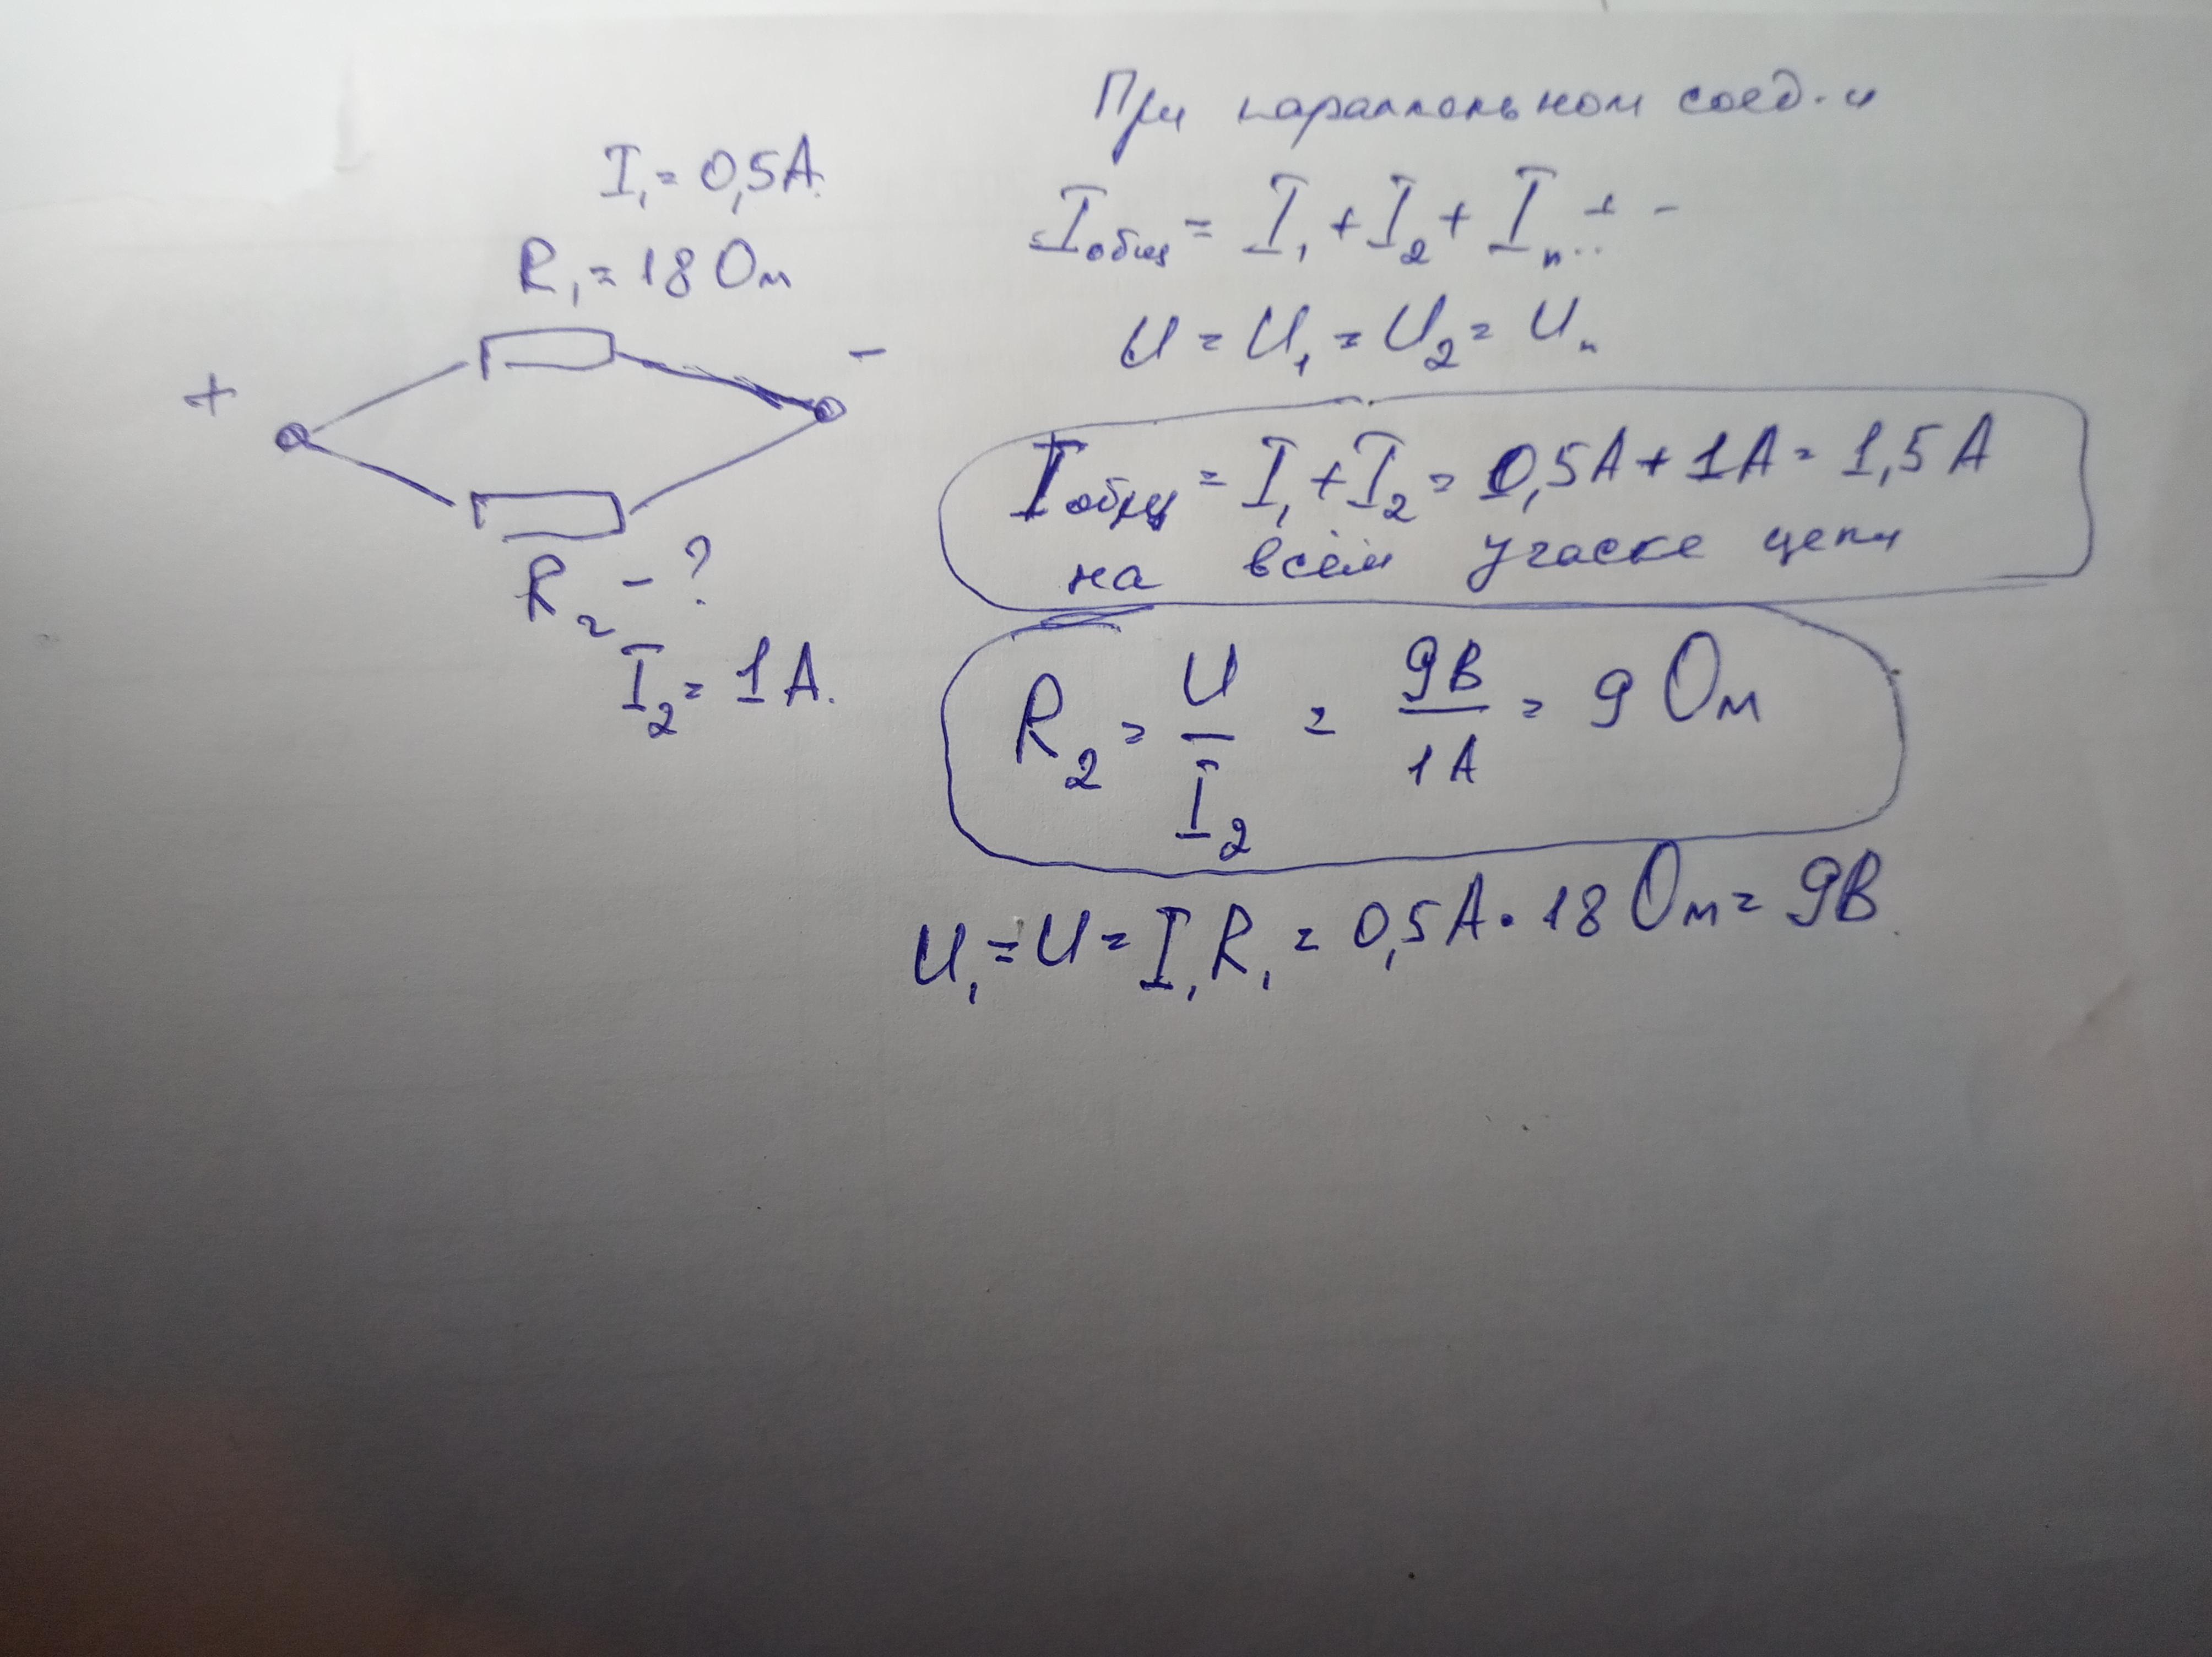 I₁ = 0,5А.
R₁ = 18 Ом
+
-
R₂ - ?
I₂ = 1А.
При параллельном соед-и
Iобщ = I₁ + I₂ + Iₙ.. + -
U = U₁ = U₂ = Uₙ
Iобщ = I₁ + I₂ = 0,5А + 1А = 1,5А
на всём учаске цепи
R₂ = U/I₂ = 9В/1А = 9 Ом
U₁ = U = I₁R₁ = 0,5А · 18 Ом = 9В.